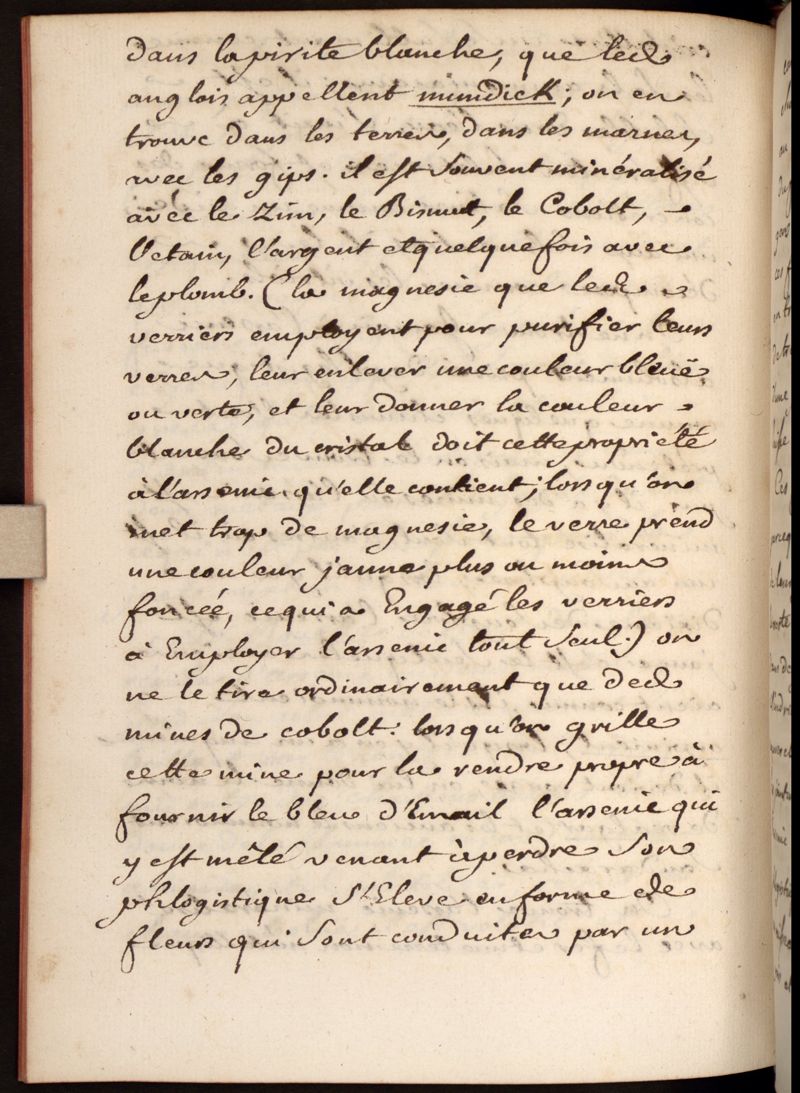 dans la pirite blanche, que les
anglois appellent mundick; on en
trouve dans les terres, dans les marnes,
avec les gips. il est souvent minéralisé
avec le Zinn, le Bismut, le Cobolt,
l'etain, l'argent et quelque fois avec
le plomb. (la magnesie que les
verriers employent pour purifier leurs
verres, leur enlever une couleur bleuë
ou verte, et leur donner la couleur
blanche du cristal doit cette propriété
à l'arsenic qu'elle contient; lors qu'on
met trop de magnesie, le verre prend
une couleur jaune plus ou moins
foncéé, ce qui a Engagé les verriers
à Employer l'arsenic tout seul.) on
ne le tire ordinairement que des
mines de cobolt. lors qu'on grille
cette mine pour la rendre propre à
fournir le bleu d'Email l'arsenic qui
y est mêlé venant à perdre son
phlogistique s'Eleve en forme de
fleurs qui sont conduites par un